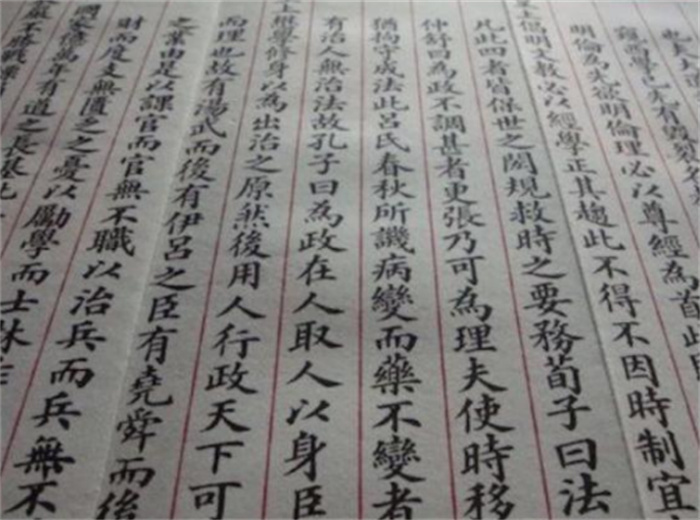 為首此
窺西學已先有毀
明倫為先欲明倫理必以尊經為
士但明文教必以經學正其趨此不得不因時制宜
凡此四者皆保世之閎規救時之要務荀子曰法
仲舒曰為政不調甚者更張乃可為理夫使時移
猶拘守成法此呂氏春秋所譏病變而藥不變者
有治人無治法故孔子曰為政在人取人以身臣
上懋學修身以為出治之原然後用人行政天下可
而理也故有湯武而後有伊呂之臣有堯舜而後
之業由是以課官而官無不職以治兵而兵無不
財而度支無匱乏之憂以勵學而士林
國家億萬年有道之長基此